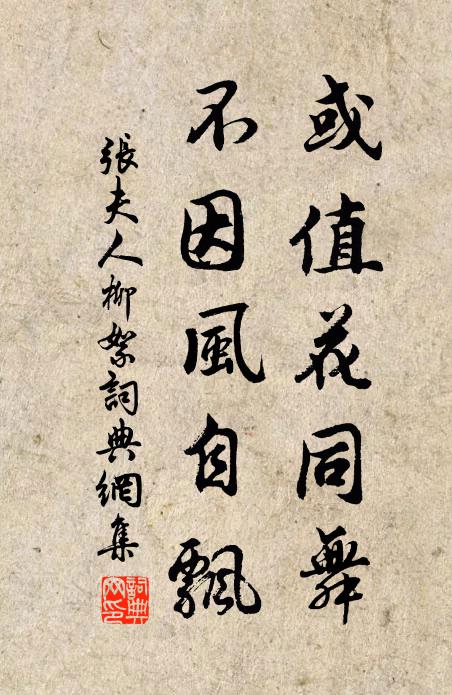 或值花同舞
不因風自飄
張夫人柳絮詞典網集
詞典網印